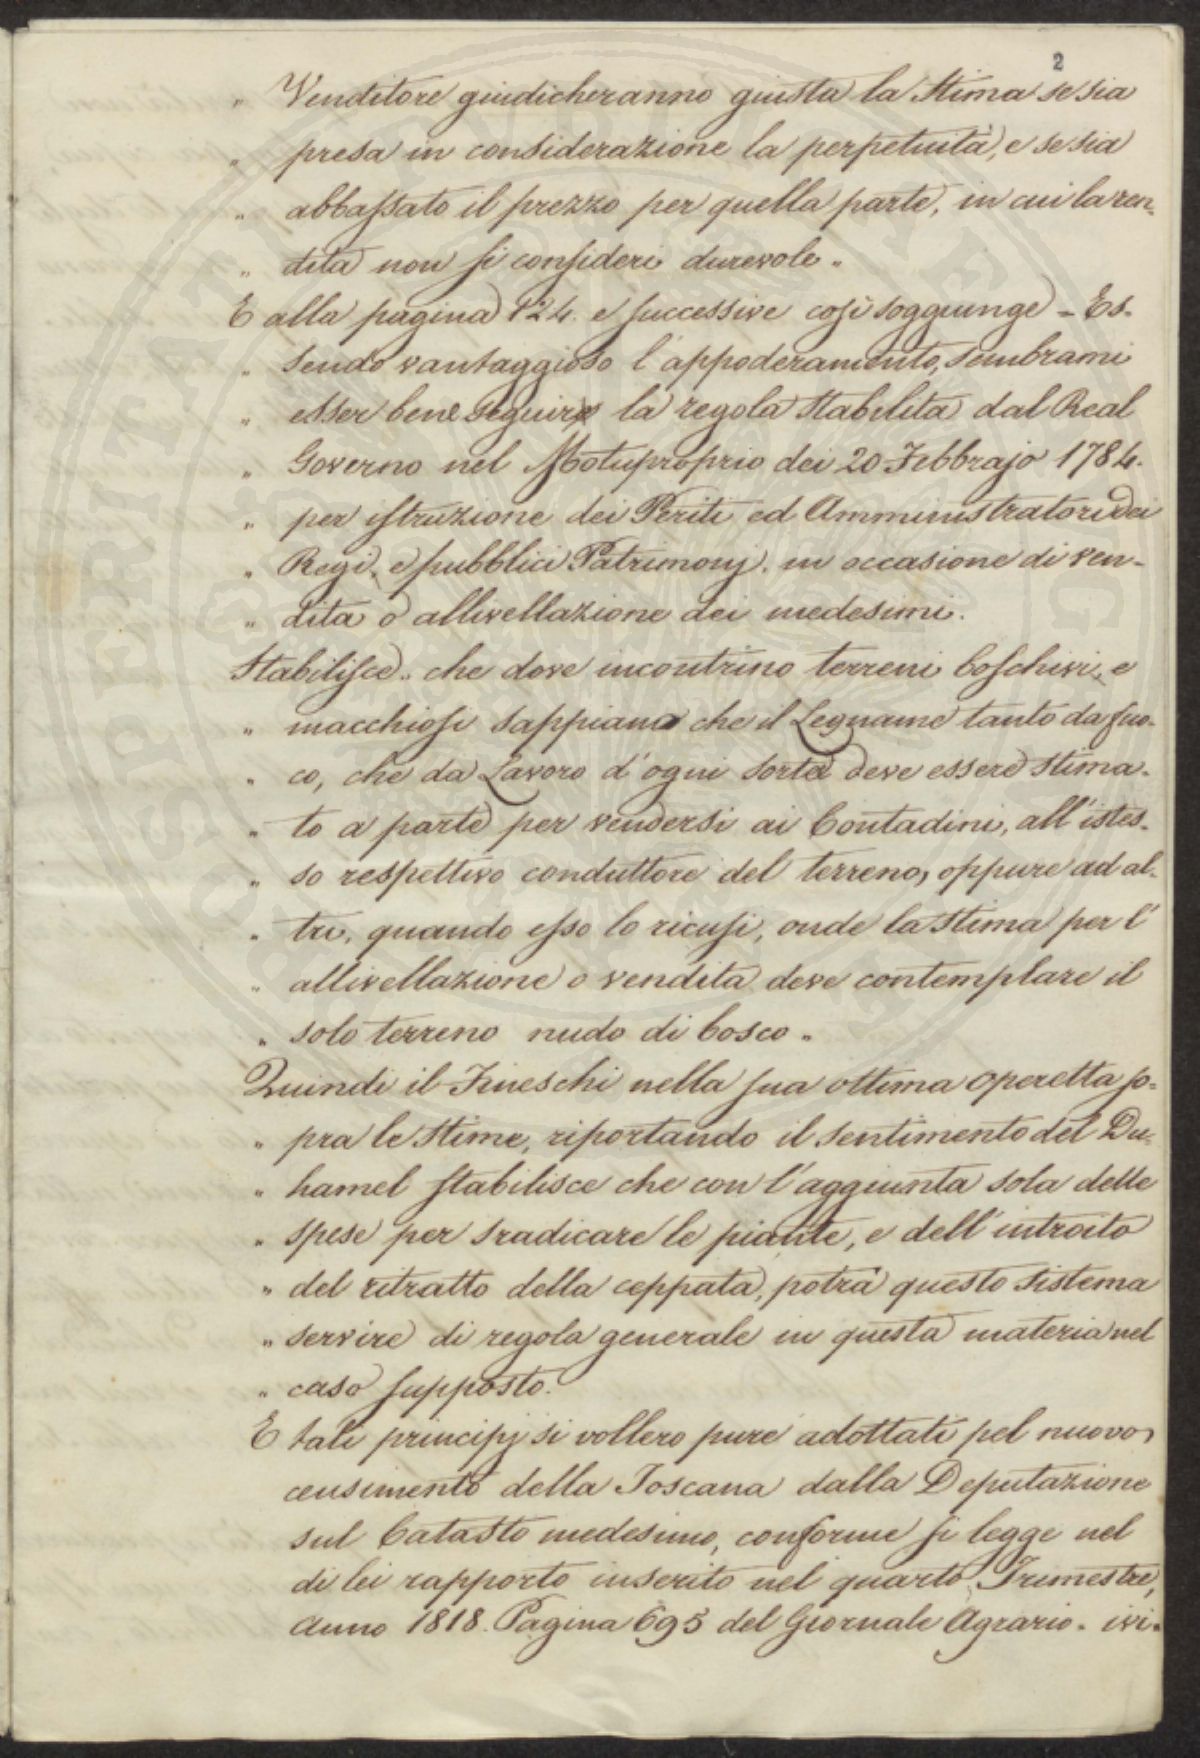 2
„ Venditore giudicheranno giusta la Stima se sia
„ presa in considerazione la perpetuità, e se sia
„ abbassato il prezzo per quella parte, in cui la ren-
„ dita non si consideri durevole „
E alla pagina 124. e successive così soggiunge - Es-
„ sendo vantaggioso l'appoderamento, sembrami
„ esser bene seguire la regola stabilita dal Real
„ Governo nel Motuproprio dei 20 Febbrajo 1784.
„ per istruzione dei Periti ed Amministratori dei
„ Regi, e pubblici Patrimonj, in occasione di ven-
„ dita o allivellazione dei medesimi.
Stabilisce „ che dove incontrino terreni boschivi, e
„ macchiosi sappiano che il Legname tanto da fuo-
„ co, che da Lavoro d'ogni sorta deve essere stima-
„ to a parte per vendersi ai Contadini, all'istes-
„ so respettivo conduttore del terreno, oppure ad al-
„ tri, quando esso lo ricusi, onde la Stima per l'
„ allivellazione o vendita deve contemplare il
„ solo terreno nudo di bosco „
Quindi il Fineschi nella sua ottima operetta so-
„ pra le Stime, riportando il sentimento del Du-
„ hamel stabilisce che con l'aggiunta sola delle
„ spese per sradicare le piante, e dell'introito
„ del ritratto della ceppata, potrà questo sistema
„ servire di regola generale in questa materia nel
„ caso supposto.
E tali principj si vollero pure adottati pel nuovo
censimento della Toscana dalla Deputazione
sul Catasto medesimo, conforme si legge nel
di lei rapporto inserito nel quarto Trimestre,
Anno 1818. Pagina 695 del Giornale Agrario. ivi.
PROSPERITATI PVBLICAE